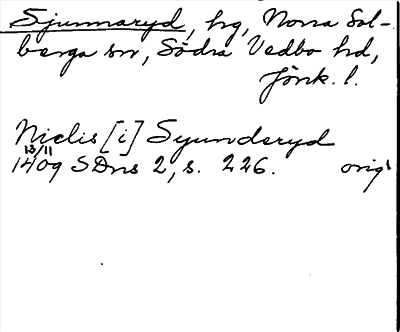 Sjunnaryd, hg, Norra Sol-
berga sn, Södra Vedbo hd,
Jönk. l.
Niclis [i] Syunderyd
13/11
1409 SDns 2, s. 226. orig